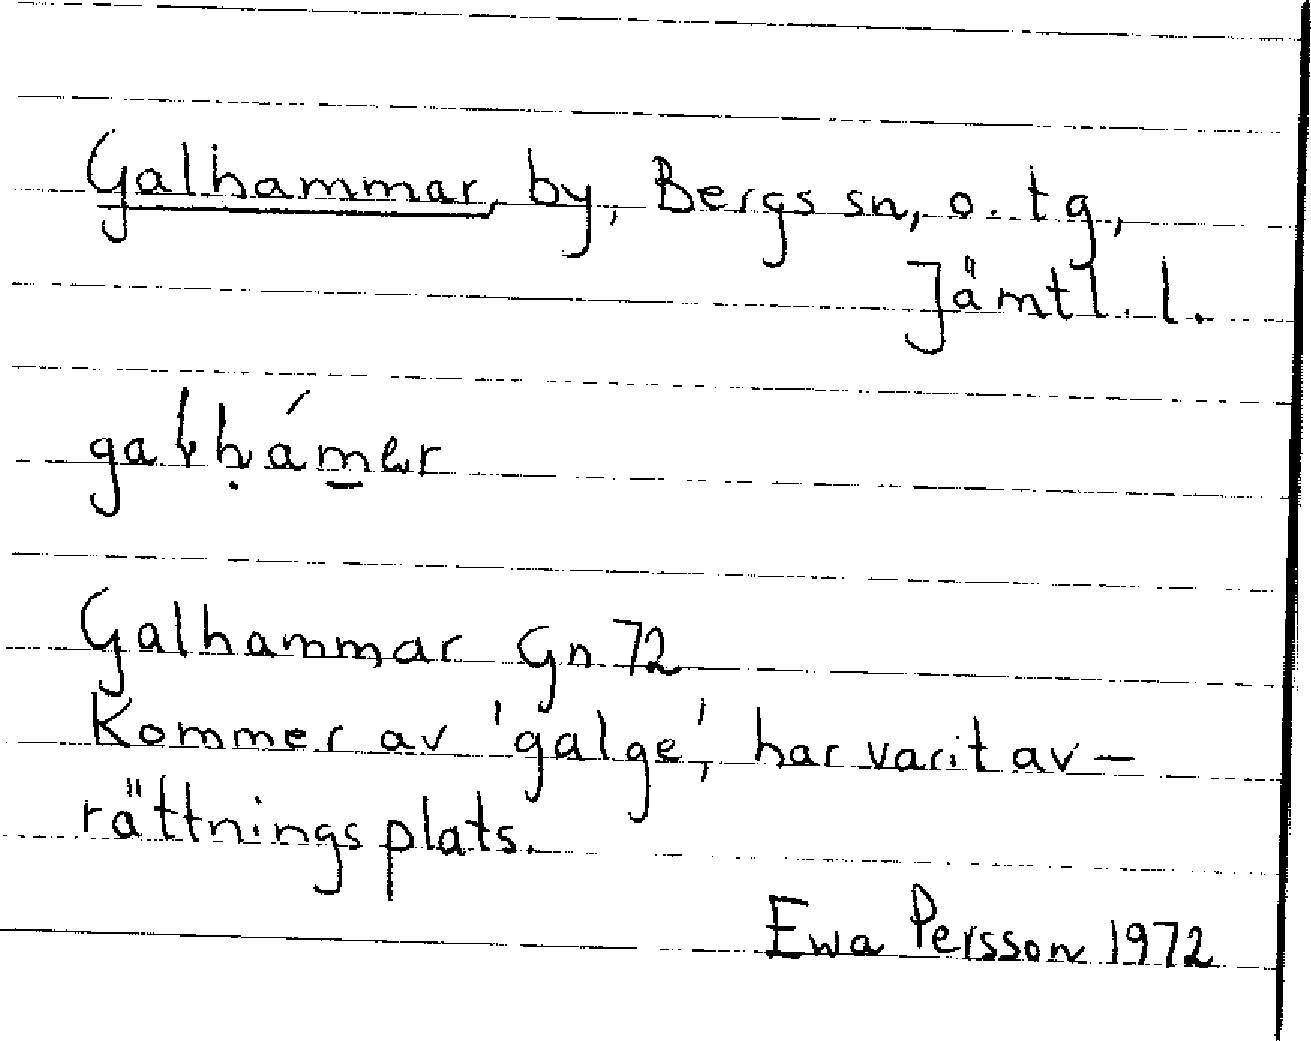 Galhammar, by, Bergs sn, o. tg,
Jämtl. l.
galḥám̱er
Galhammar Gn 72
Kommer av 'galge', har varit av-
rättningsplats.
Ewa Persson 1972